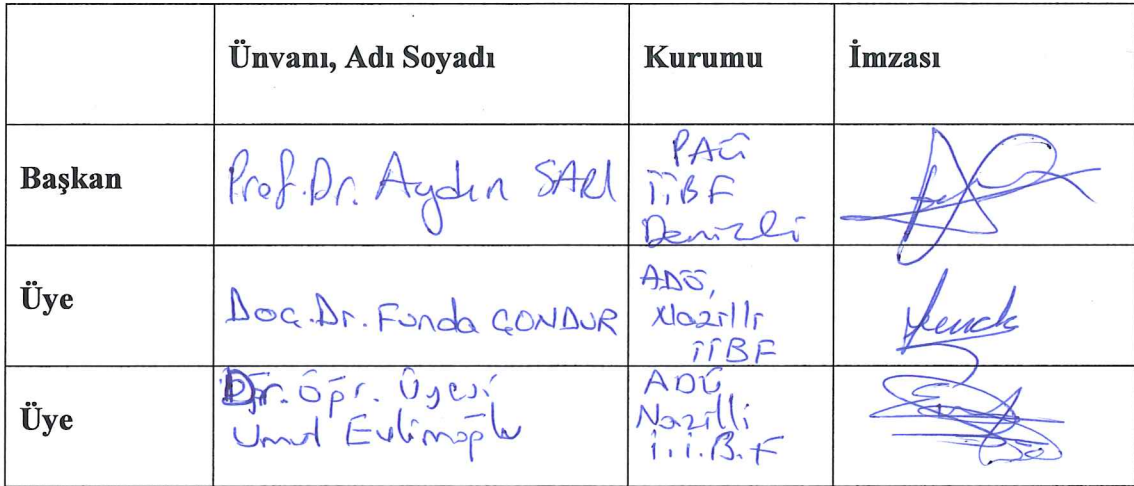 Ünvanı, Adı Soyadı Kurumu İmzası
Başkan Prof. Dr. Aydın SARI PAÜ
İİBF
Denizli
Üye Doç. Dr. Funda ÇONDUR ADÜ,
Nazilli
İİBF
Üye Dr. Öğr. Üyesi
Umut Evlimoğlu ADÜ
Nazilli
İ.İ.B.F